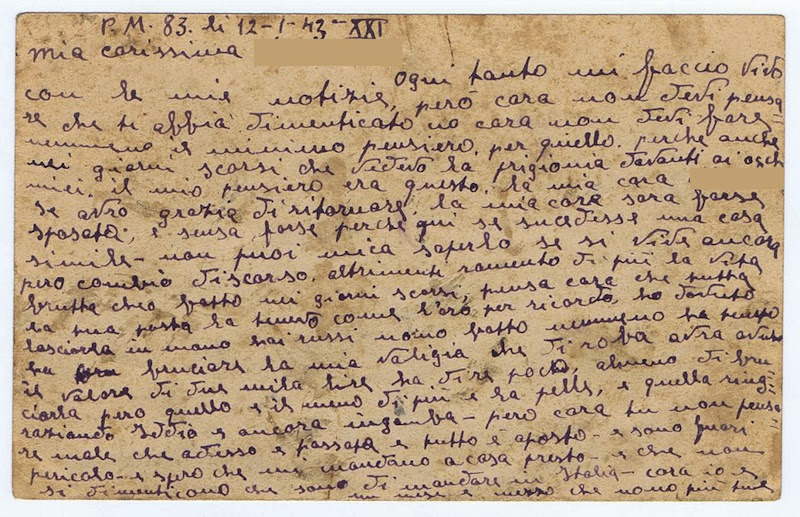 P.M. 83. li 12-1-43-XXI
mia carissima
Ogni tanto mi faccio vivo
con le mie notizie, però cara non devi pensa-
re che ti abbia dimenticato no cara non devi fare
nemmeno il minimo pensiero, per quello, perche anche
nei giorni scorsi che vedevo la prigionia davanti ai occh
miei, il mio pensiero era questo, la mia cara
se avro grazia di ritornare, la mia cara sara forse
sposata, e scusa, forse perche qui se sucedesse una cosa
simile - non puoi mica saperlo se si vive ancora
pero cambio discorso, altrimenti ramento di piu la vita
brutta che o fatto nei giorni scorsi, pensa cara che tutta
la tua posta la tenevo come l'oro per ricordo, ho dovuto
lasciarla in mano hai russi nono fatto nemmeno ha tempo
ha bruciare la mia valigia che di roba avra avuto
il valore di due mila lire ha dire poco, almeno di bru
ciarla pero quello e il meno di piu e la pelle, e quella ring-
raziando Iddio e ancora ingamba - pero cara tu non pensa-
re male che adesso e passata e tutto è aposto - e sono fuori
pericolo - e spero che mi mandano a casa presto - e che non
si dimenticono che sono di mandare in Italia - cara io e
un mese e mezzo che nono più tue